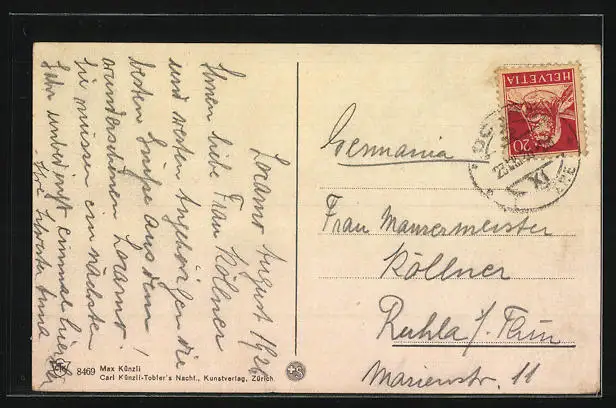 Locarno August 1926
Ihnen liebe Frau Köllner
und werten Angehörigen die
besten Grüße aus dem
wunderschönen Locarno!
Sie müssen im nächsten
Jahr unbedingt einmal hierher
Ihre Schwester Anna
HELVETIA
20
Germania
Frau Maurermeister
Köllner
Ruhla / Thür
Marienstr. 11
8469 Max Künzli
Carl Künzli-Tobler's Nachf., Kunstverlag, Zürich